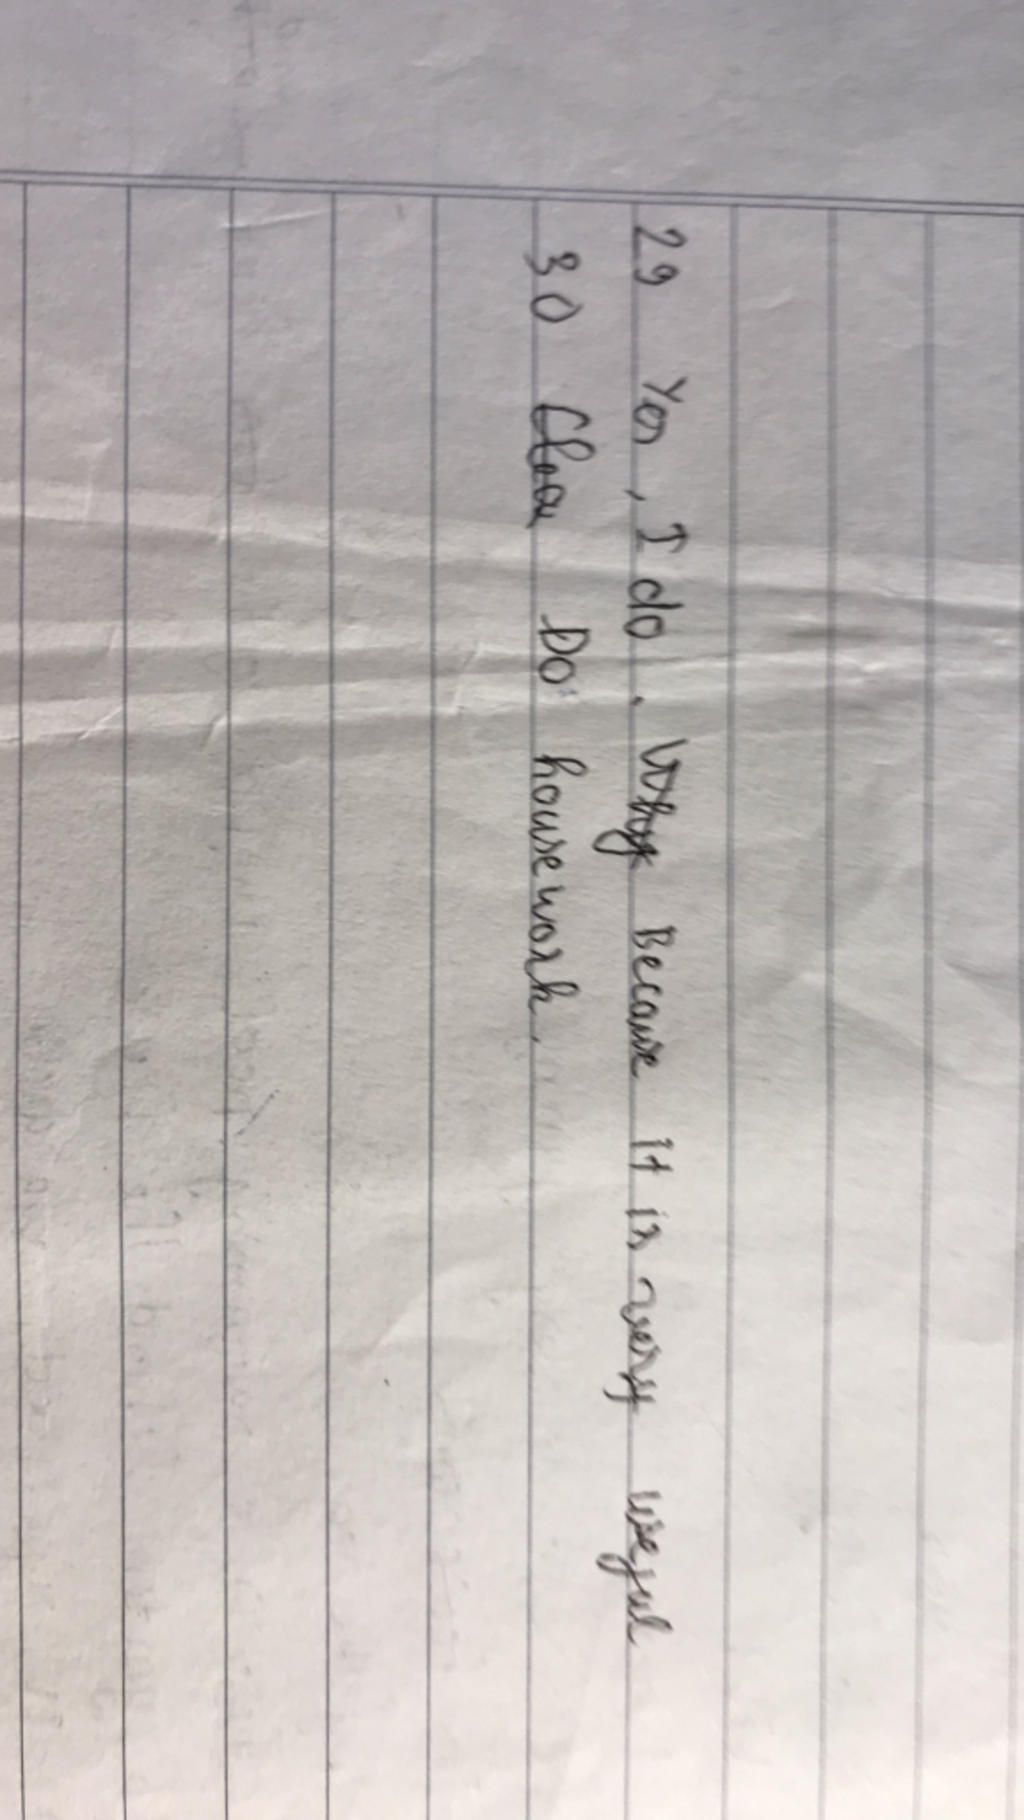 29 Yes, I do. Why Because it is very useful
30 Clea Do housework.